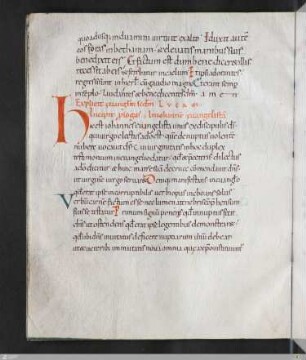 quoadusq; induamini uirtute ex alto Eduxit aute
eos foras inbethaniam & eleuatis manibus suis
benedixit eis Et factum est dum benediceret illis
recessit ab eis & ferebatur in caelum Et ipsi adorantes
regressi sunt in hierusalem cum gaudio magno & erant semp
in templo laudantes & benedicentes dm amen
Explicit euangelium secdm Lucam
Incipit iohannis euangelista
Hic est iohannes euangelista unus ex discipulis di
qui uirgo electus a do est quem de nuptiis uolente
nubere uocauit ds Cui uirginitatis in hoc duplex
testimonium in euangelio datur quod et prae ceteris dilectus
a do dicitur et huic matrem suam de cruce commendauit dns
ut uirginem uirgo seruaret Denique manifestans in euangelio
quod erat ipse incorruptibilis uerbi opus inchoans solus
uerbum caro factum esse nec lumen a tenebris comprehensum
fuisse testatur Primum signum ponens quod in nuptiis fecit
dns ut ostendens quod erat ipse legentibus demonstraret
quod ubi dns inuitatus deficere nuptiarum uinum debeat
ut ueteribus inmutatis noua omnia quae a xpo instituuntur